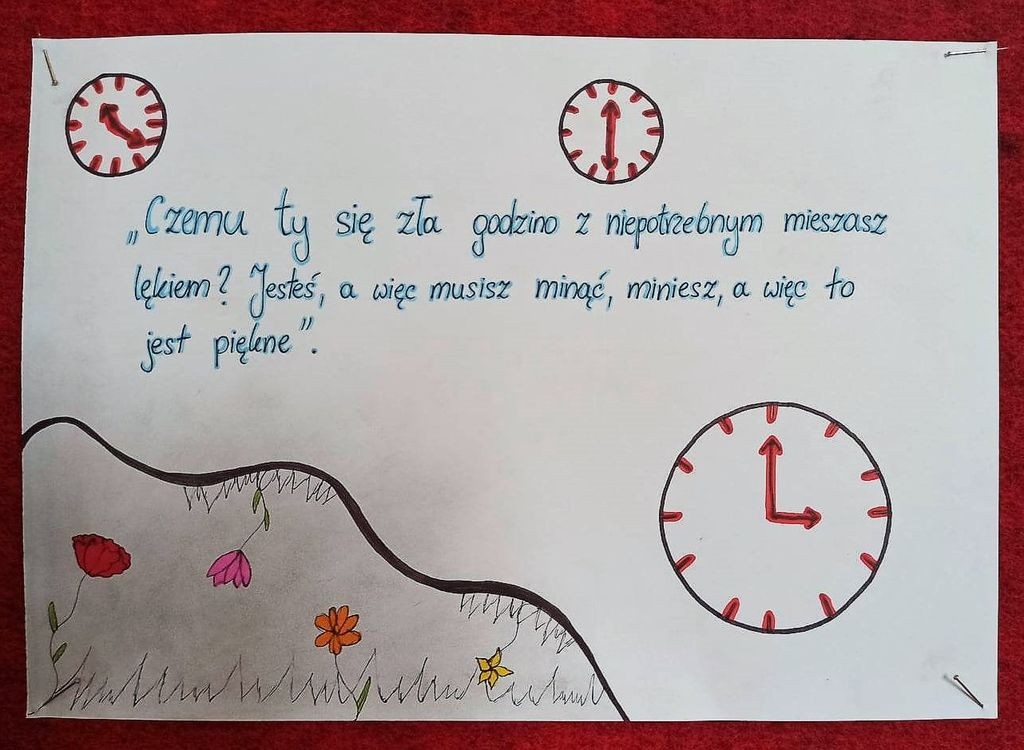 „Czemu ty się zła godzino z niepotrzebnym mieszasz
lękiem? Jesteś, a więc musisz minąć, miniesz, a więc to
jest piękne”.